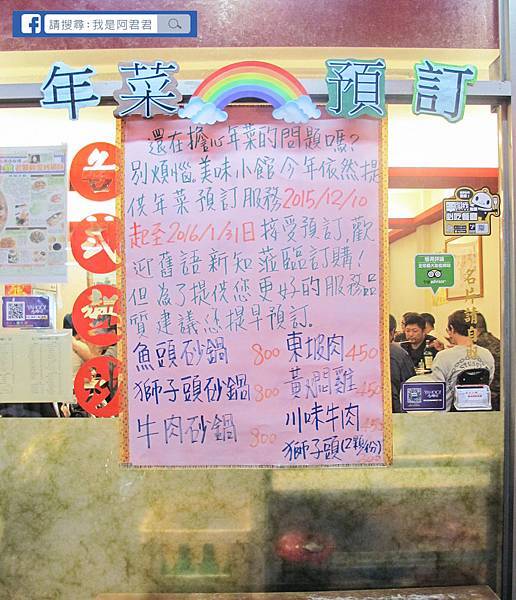 請搜尋：我是阿君君
年菜預訂
還在擔心年菜的問題嗎？
別煩惱。美味小館今年依然提
供年菜預訂服務2015/12/10
起至2016/1/31日接受預訂，歡
迎舊語新知蒞臨訂購！
但為了提供您更好的服務品
質建議您提早預訂。
魚頭砂鍋 800
獅子頭砂鍋 800
牛肉砂鍋 800
東坡肉 450
黃燜雞 450
川味牛肉 450
獅子頭(2顆/份)
各式熱炒
名片請自取
YAHOO!
YAHOO!